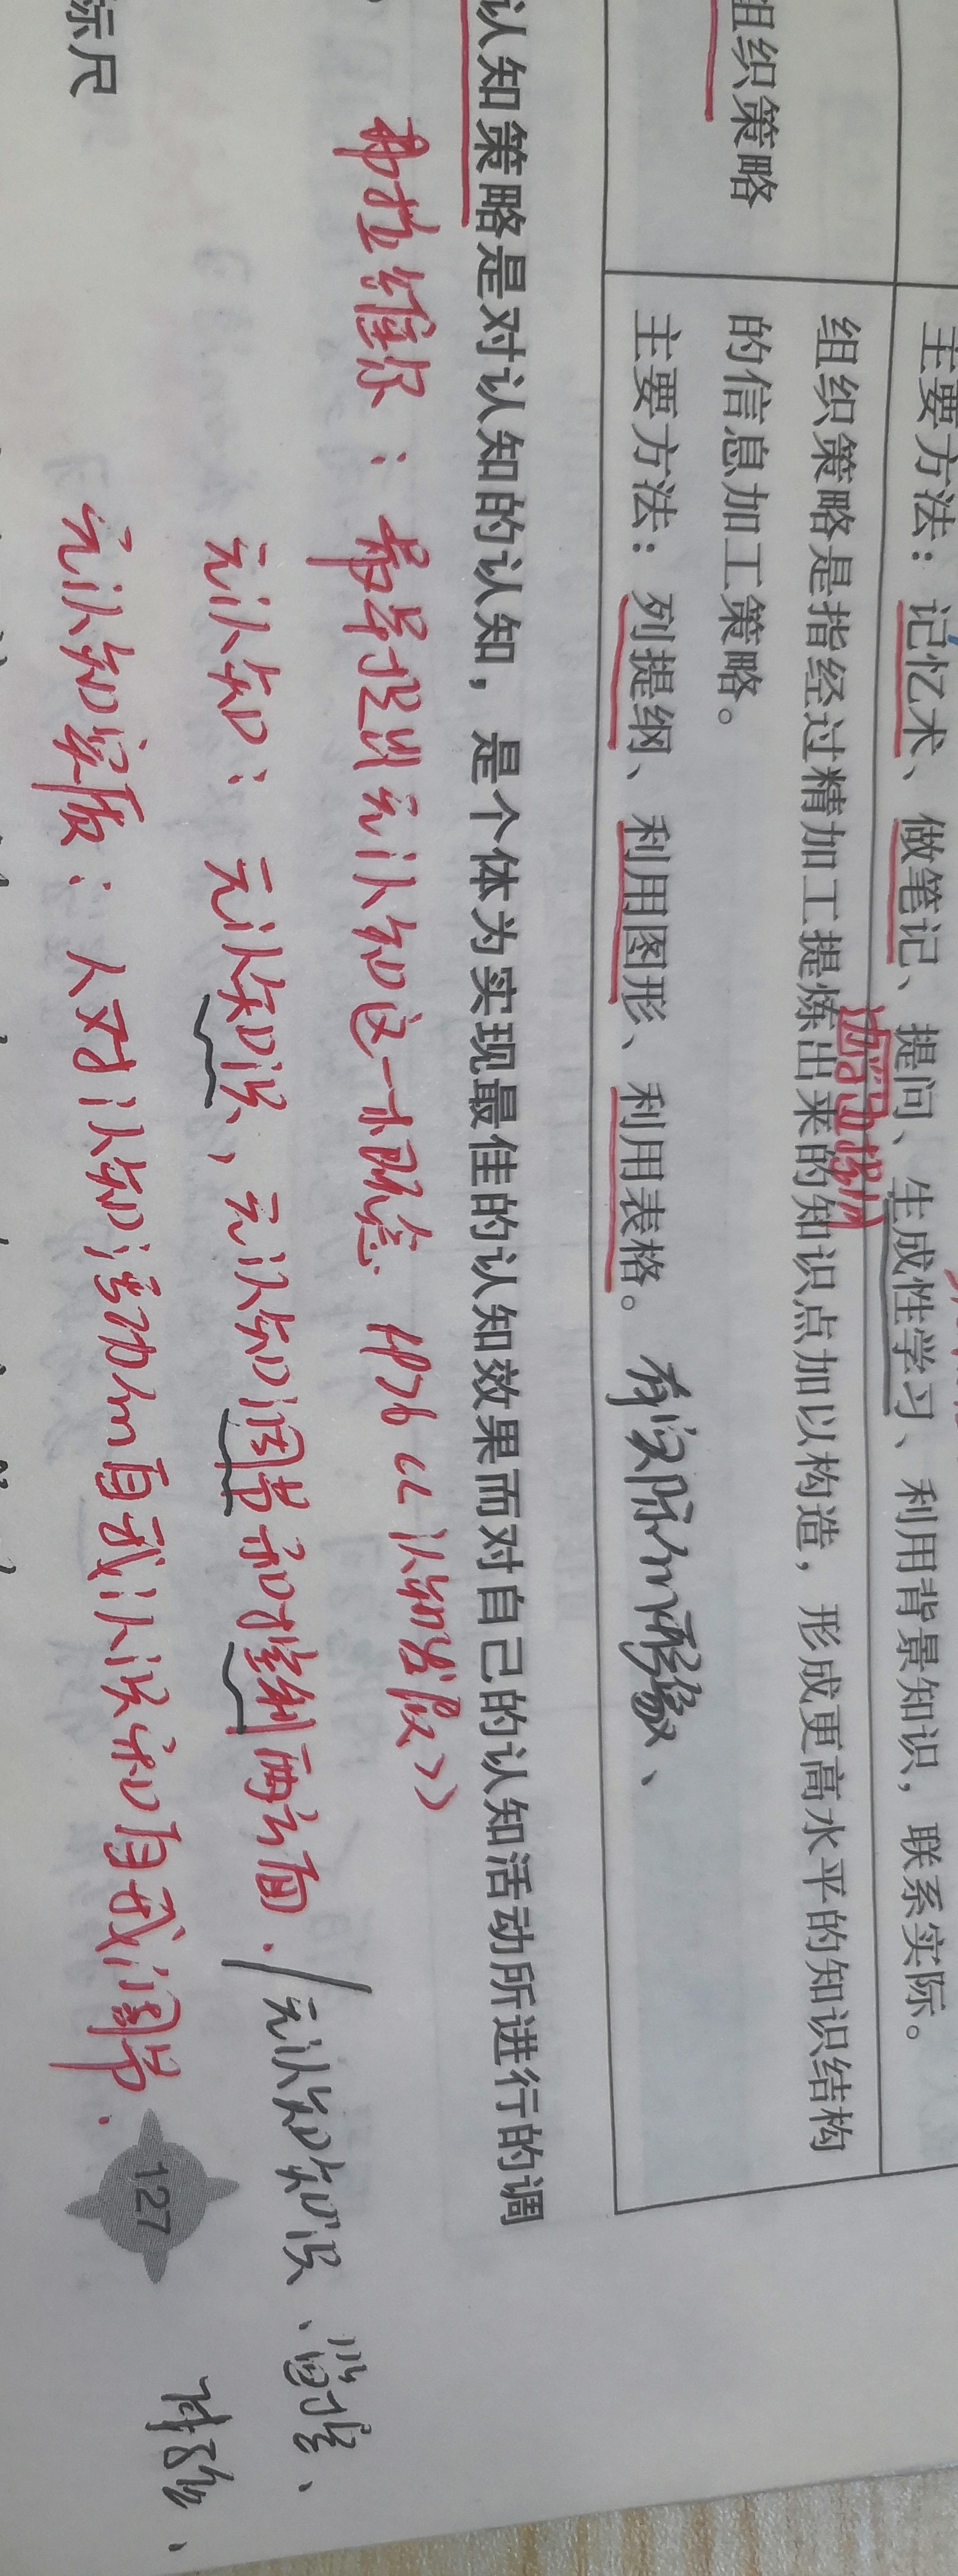 主要方法：记忆术、做笔记、提问、生成性学习、利用背景知识，联系实际。
组织策略
组织策略是指经过精加工提炼出来的知识点加以构造，形成更高水平的知识结构
的信息加工策略。
主要方法：列提纲、利用图形、利用表格。
认知策略是对认知的认知，是个体为实现最佳的认知效果而对自己的认知活动所进行的调
弗拉维尔：最早提出元认知这一概念 1976《认知发展》
元认知：元认知知识，元认知调节和控制两方面./元认知知识、监控、
体验、
元认知实质：人对认知活动的自我认识和自我调节.
标尺
127